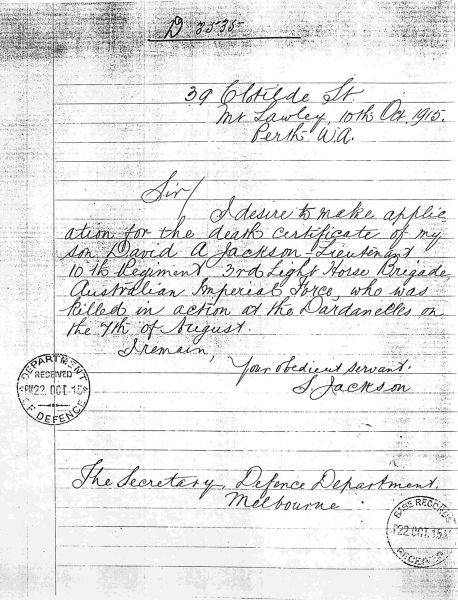 D 3535
39 Clotilde St.
Mt Lawley, 10th Oct, 1915.
Perth W.A.
Sir/
I desire to make applic
ation for the death certificate of my
son David A Jackson - Lieutenant.
10th Regiment 3rd Light Horse Brigade,
Australian Imperial Force, who was
killed in action at the Dardanelles on
the 7th of August.
I remain,
Your obedient servant.
S. Jackson
DEPARTMENT
RECEIVED
PM 22 OCT. 15
OF DEFENCE
The Secretary, Defence Department.
Melbourne
BASE RECORDS
P22 OCT. 15
RECEIVED